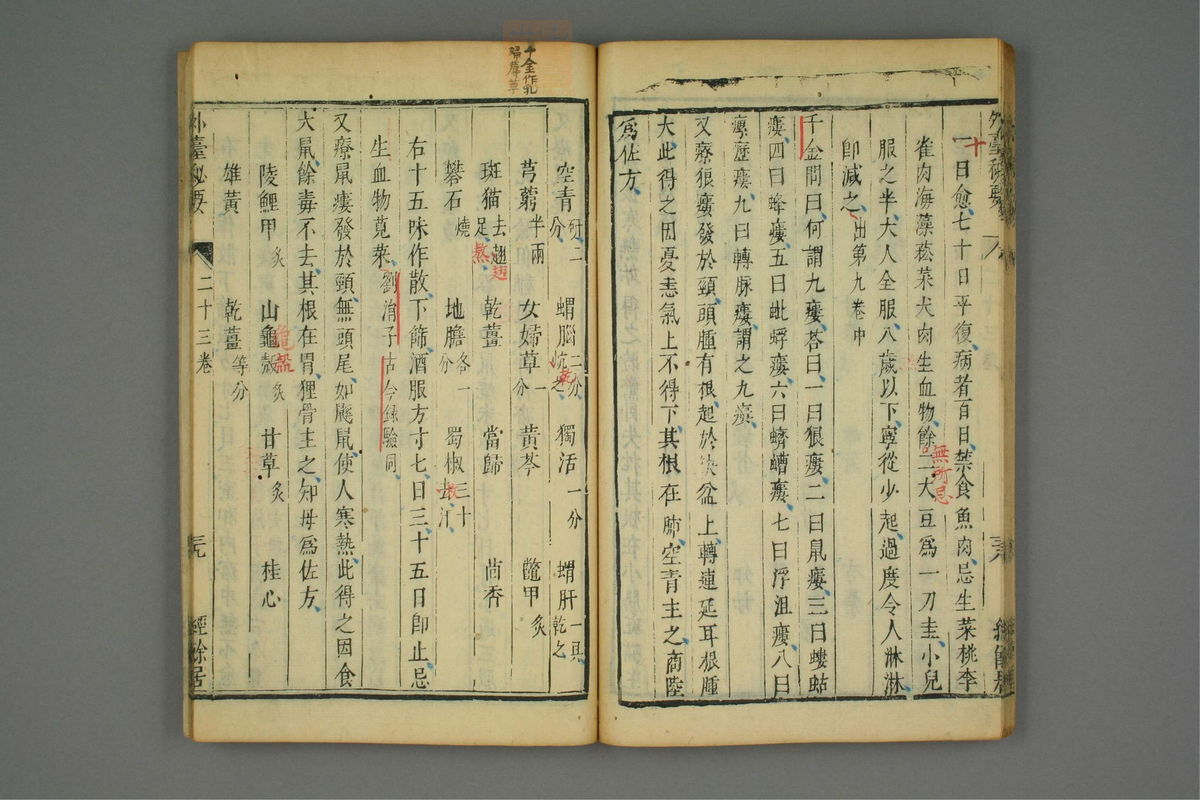 一日愈七十日平復病者百日禁食魚肉忌生菜桃李
雀肉海藻菘菜犬肉生血物餘二大豆為一刀圭小兒
服之半大人全服八歲以下寧從少起過度令人淋淋
卽減之出第九卷中
千金問曰何謂九瘻荅曰一曰狼瘻二曰鼠瘻三曰螻蛄
瘻四曰蜂瘻五曰蚍蜉瘻六曰蠐螬瘻七曰浮沮瘻八曰
瘰癧瘻九曰轉脉瘻謂之九瘻
又療狼瘻發於頸頭腫有根起於缺盆上轉連延耳根腫
大此得之因憂恚氣上不得下其根在肺空青主之商陸
爲佐方
十
無所忌
外臺秘要
千金作乳
婦蓐草
空青研二分 蝟腦二分炕之 獨活一分 蝟肝一具乾之
芎藭半兩 女婦草一分 黃芩 鼈甲炙
斑猫去翅足熬 乾薑 當歸 茴香
礬石燒 地膽各一分 蜀椒三十去汗
右十五味作散下篩酒服方寸匕日三十五日卽止忌
生血物莧菜劉涓子古今錄驗同
又療鼠瘻發於頸無頭尾如鼷鼠使人寒熱此得之因食
大鼠餘毒不去其根在胃狸骨主之知母爲佐方
陵鯉甲炙 山龜殼炙 甘草炙 桂心
雄黃 乾薑等分
外臺秘要
二十三卷
三九
經餘居